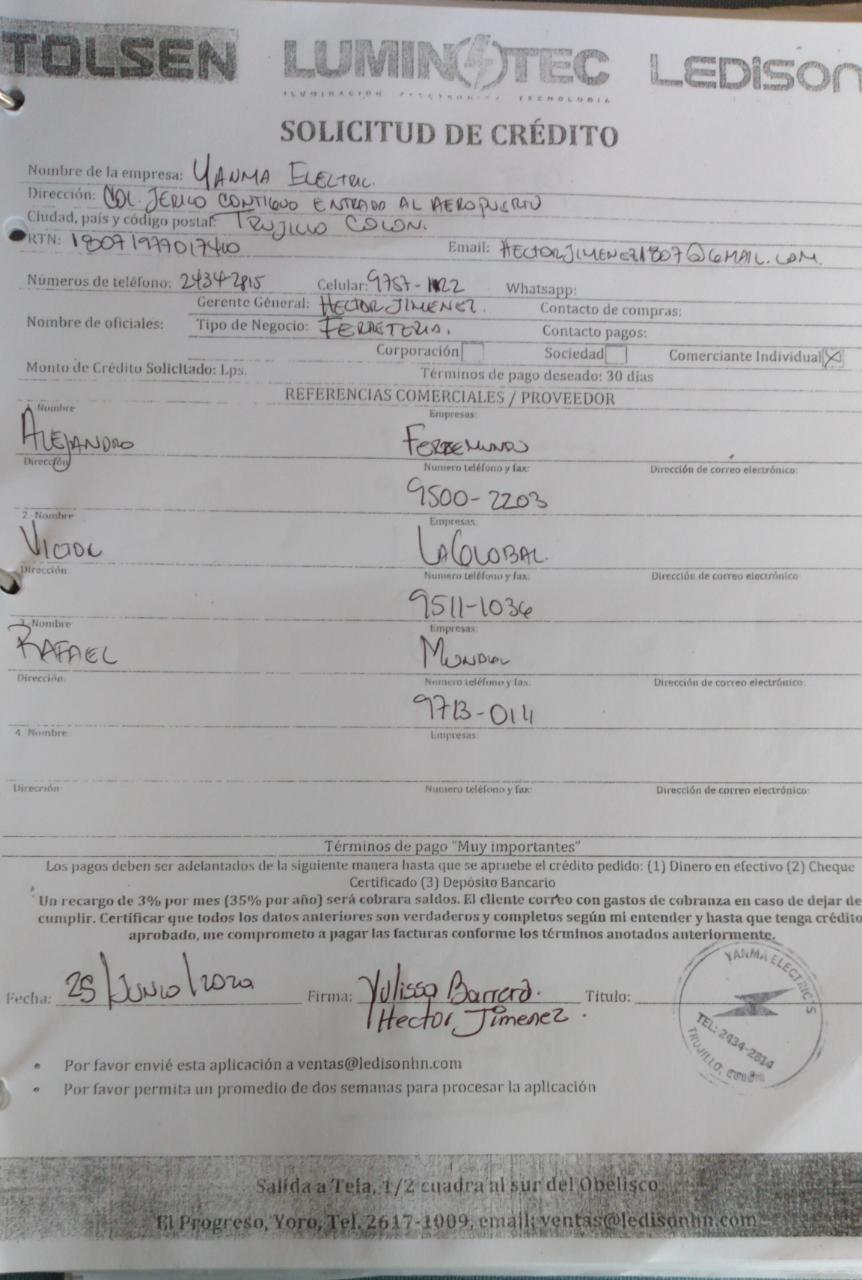 TOLSEN LUMINOTEC LEDISON
ILUMINACIÓN ELECTRONICA TECNOLOGIA
SOLICITUD DE CRÉDITO
Nombre de la empresa: YANMA ELECTRIC.
Dirección: COL. JERICO CONTIGUO ENTRADO AL AEROPUERTO
Ciudad, país y código postal: TRUJILLO COLON.
RTN: Email: HECTORJIMENEZ1807@GMAIL.COM
Números de teléfono: 2434-2815 Celular: Whatsapp:
Gerente Géneral: HECTOR JIMENEZ. Contacto de compras:
Nombre de oficiales: Tipo de Negocio: FERRETERIA. Contacto pagos:
Corporación Sociedad Comerciante Individual X
Monto de Crédito Solicitado: Lps. Términos de pago deseado: 30 días
REFERENCIAS COMERCIALES / PROVEEDOR
1. Nombre Empresas:
ALEJANDRO FERREMUNDO
Dirección Numero teléfono y fax: Dirección de correo electrónico:
9500-2203
2. Nombre Empresas:
VICTOR LA GLOBAL.
Dirección Numero teléfono y fax: Dirección de correo electrónico:
9511-1036
3. Nombre Empresas:
RAFAEL MUNDIAL
Dirección: Numero teléfono y fax: Dirección de correo electrónico:
9713-014
4. Nombre Empresas:
Dirección Numero teléfono y fax: Dirección de correo electrónico:
Términos de pago "Muy importantes"
Los pagos deben ser adelantados de la siguiente manera hasta que se apruebe el crédito pedido: (1) Dinero en efectivo (2) Cheque
Certificado (3) Depósito Bancario
Un recargo de 3% por mes (35% por año) será cobrara saldos. El cliente correo con gastos de cobranza en caso de dejar de
cumplir. Certificar que todos los datos anteriores son verdaderos y completos según mi entender y hasta que tenga crédito
aprobado, me comprometo a pagar las facturas conforme los términos anotados anteriormente.
Fecha: 25/JUNIO/2020 Firma: Yulissa Barrera. Título:
Hector Jimenez.
YANMA ELECTRIC'S
TEL: 2434-2814
TRUJILLO, COLÓN
• Por favor envié esta aplicación a ventas@ledisonhn.com
• Por favor permita un promedio de dos semanas para procesar la aplicación
Salida a Tela, 1/2 cuadra al sur del Obelisco
El Progreso, Yoro, Tel. 2617-1009, email; ventas@ledisonhn.com